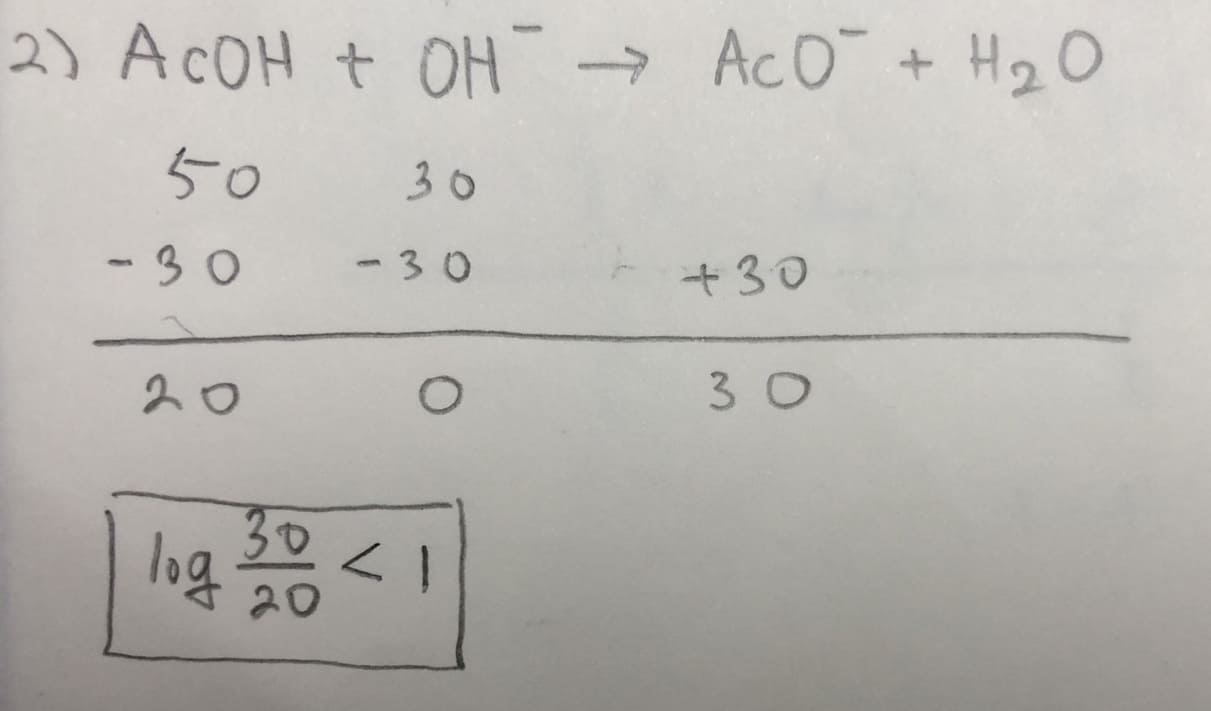 2) AcOH + OH⁻ → AcO⁻ + H₂O
50 30
-30 -30 +30
20 0 30
log 30/20 < 1